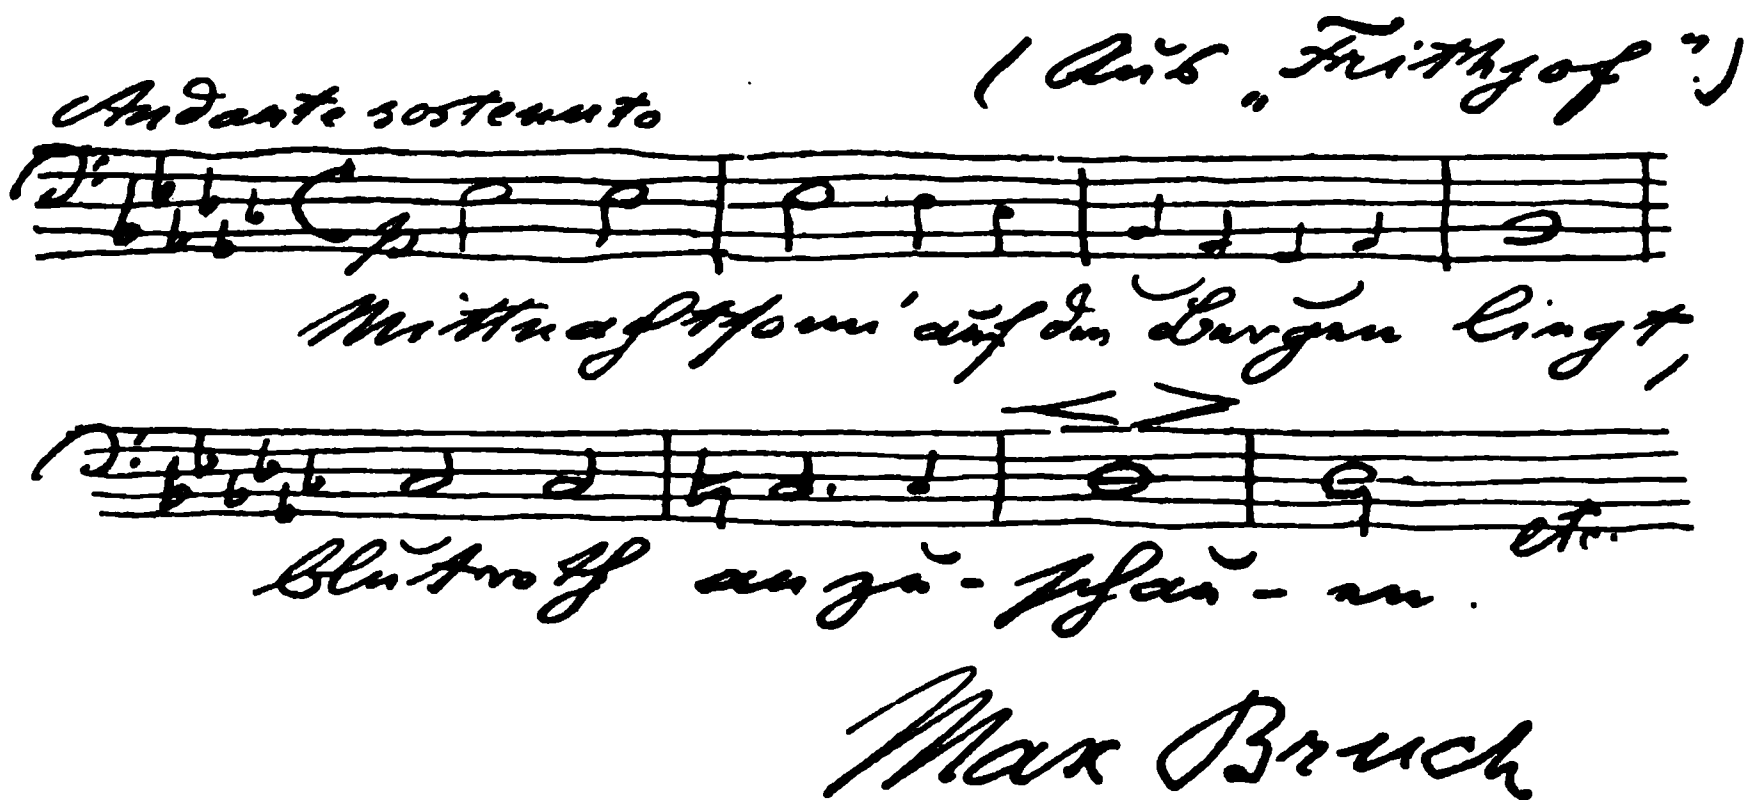 (Aus „Frithjof".)
Andante sostenuto
p
Mitternachtsonn' auf den Bergen liegt,
etc.
blutroth anzu-schau-en.
Max Bruch